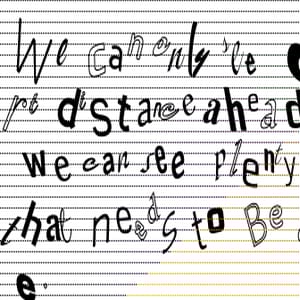 We can only
rt distance ahead
we can see plenty
that needs to Be
e.